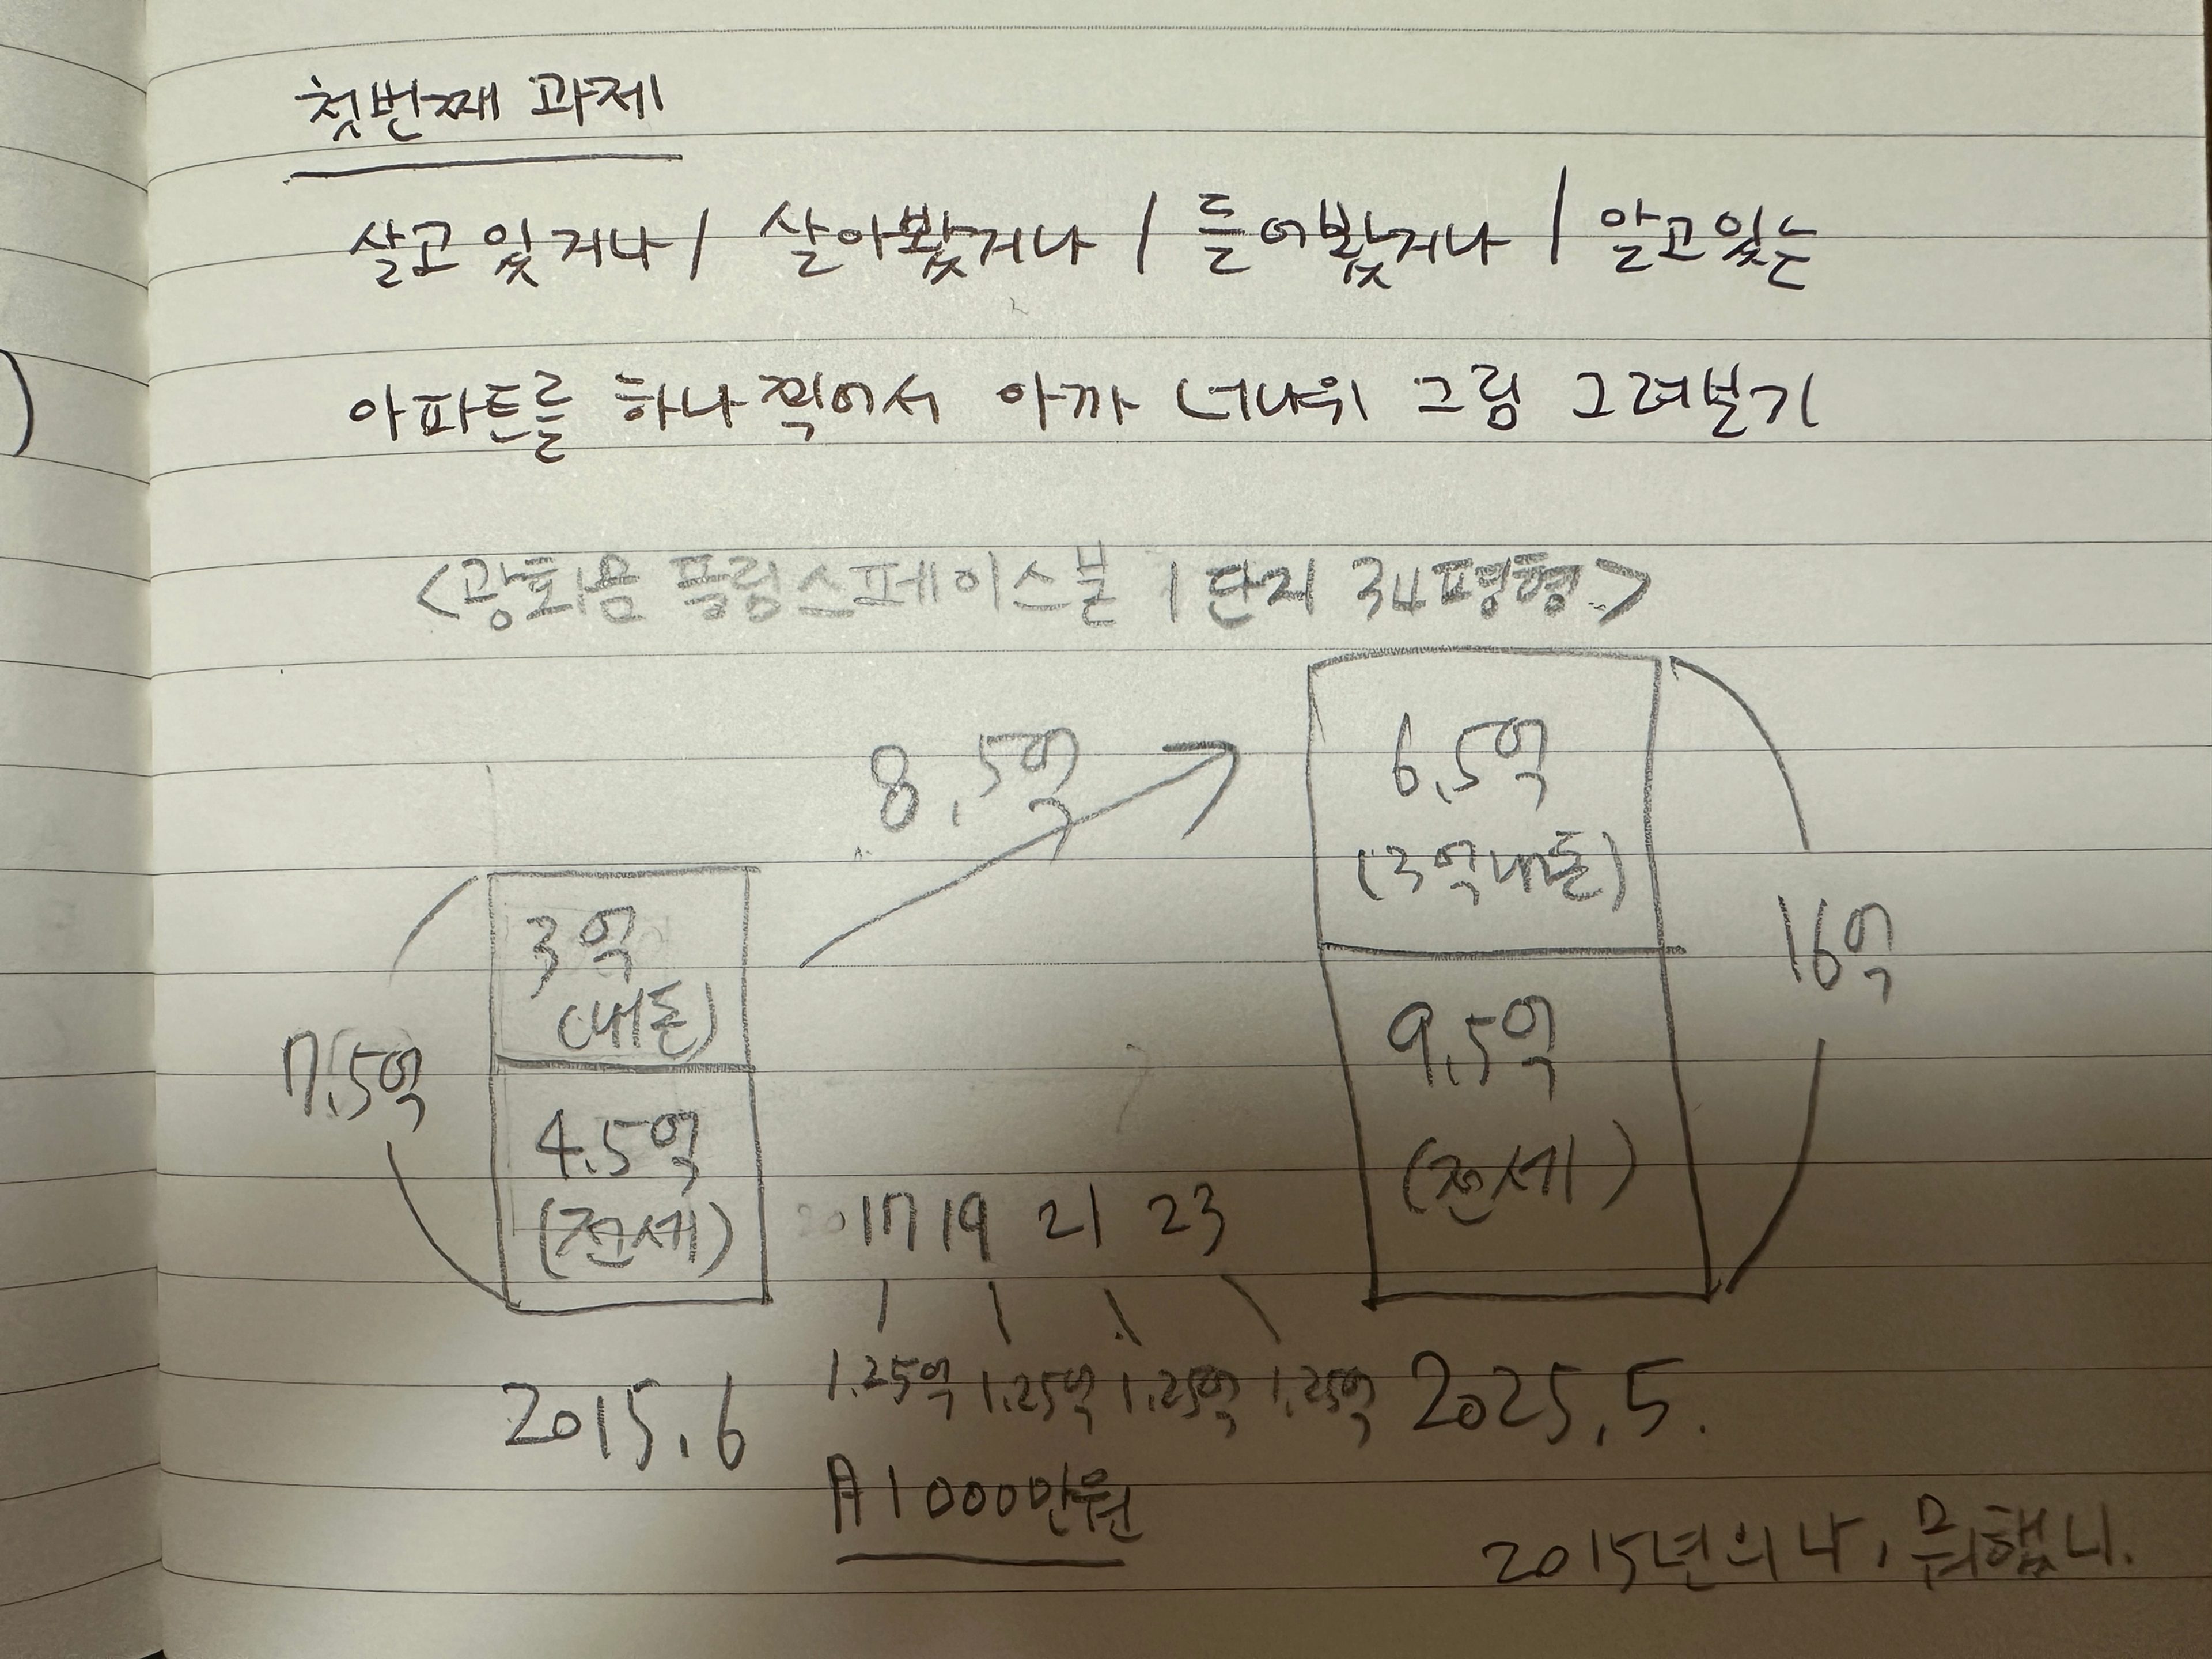 첫번째 과제
살고있거나 / 살아봤거나 / 들어봤거나 / 알고있는
아파트를 하나 찍어서 아까 너나위 그림 그려보기
<광화문 풍림스페이스본 1단지 34평형>
8.5억
7.5억
3억
(내돈)
4.5억
(전세)
6.5억
(3억내돈)
9.5억
(전세)
16억
2017 19 21 23
1.25억 1.25억 1.25억 1.25억
2015.6
2025.5.
1000만원
2015년의 나, 뭐했니.